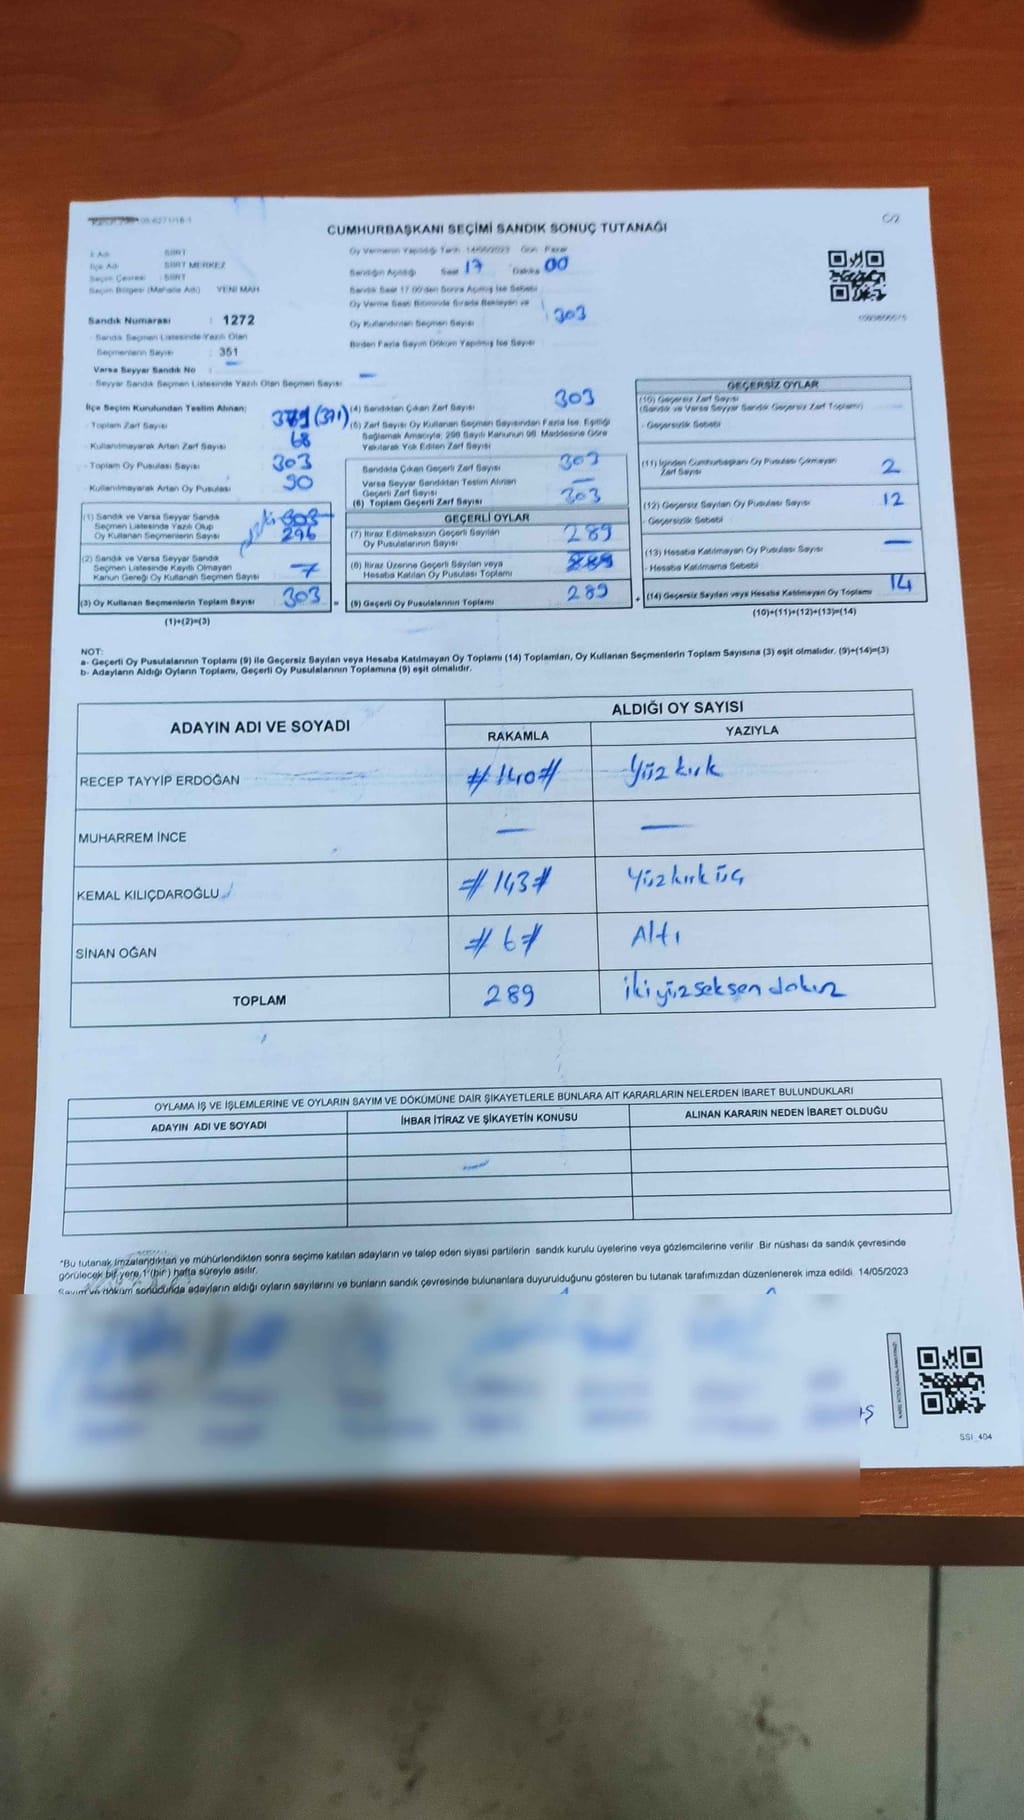 C/2
CUMHURBAŞKANI SEÇİMİ SANDIK SONUÇ TUTANAĞI
İl Adı : SİİRT
İlçe Adı : SİİRT MERKEZ
Seçim Çevresi : SİİRT
Seçim Bölgesi (Mahalle Adı) YENİ MAH
Sandık Numarası : 1272
- Sandık Seçmen Listesinde Yazılı Olan
Seçmenlerin Sayısı : 351
Varsa Seyyar Sandık No : —
- Seyyar Sandık Seçmen Listesinde Yazılı Olan Seçmen Sayısı : —
Oy Vermenin Yapıldığı Tarih 14/05/2023 Gün Pazar
Sandığın Açıldığı Saat 17 Dakika 00
Sandık Saat 17.00'den Sonra Açılmış İse Sebebi
Oy Verme Saati Bitiminde Sırada Bekleyen ve
Oy Kullandırılan Seçmen Sayısı : 303
Birden Fazla Sayım Döküm Yapılmış İse Sayısı :
İlçe Seçim Kurulundan Teslim Alınan;
- Toplam Zarf Sayısı (371)
- Kullanılmayarak Artan Zarf Sayısı 68
- Toplam Oy Pusulası Sayısı 303
- Kullanılmayarak Artan Oy Pusulası 90
(1) Sandık ve Varsa Seyyar Sandık
Seçmen Listesinde Yazılı Olup
Oy Kullanan Seçmenlerin Sayısı 303 296
(2) Sandık ve Varsa Seyyar Sandık
Seçmen Listesinde Kayıtlı Olmayan
Kanun Gereği Oy Kullanan Seçmen Sayısı 7
(3) Oy Kullanan Seçmenlerin Toplam Sayısı 303 =
(1)+(2)=(3)
(4) Sandıktan Çıkan Zarf Sayısı 303
(5) Zarf Sayısı Oy Kullanan Seçmen Sayısından Fazla İse, Eşitliği
Sağlamak Amacıyla; 298 Sayılı Kanunun 98. Maddesine Göre
Yakılarak Yok Edilen Zarf Sayısı
Sandıkta Çıkan Geçerli Zarf Sayısı 303
Varsa Seyyar Sandıktan Teslim Alınan
Geçerli Zarf Sayısı —
(6) Toplam Geçerli Zarf Sayısı 303
GEÇERLİ OYLAR
(7) İtiraz Edilmeksizin Geçerli Sayılan
Oy Pusulalarının Sayısı 289
(8) İtiraz Üzerine Geçerli Sayılan veya
Hesaba Katılan Oy Pusulası Toplamı
(9) Geçerli Oy Pusulalarının Toplamı 289 +
GEÇERSİZ OYLAR
(10) Geçersiz Zarf Sayısı
(Sandık ve Varsa Seyyar Sandık Geçersiz Zarf Toplamı)
- Geçersizlik Sebebi
(11) İçinden Cumhurbaşkanı Oy Pusulası Çıkmayan
Zarf Sayısı 2
(12) Geçersiz Sayılan Oy Pusulası Sayısı 12
- Geçersizlik Sebebi
(13) Hesaba Katılmayan Oy Pusulası Sayısı —
- Hesaba Katılmama Sebebi
(14) Geçersiz Sayılan veya Hesaba Katılmayan Oy Toplamı 14
(10)+(11)+(12)+(13)=(14)
NOT:
a- Geçerli Oy Pusulalarının Toplamı (9) ile Geçersiz Sayılan veya Hesaba Katılmayan Oy Toplamı (14) Toplamları, Oy Kullanan Seçmenlerin Toplam Sayısına (3) eşit olmalıdır. (9)+(14)=(3)
b- Adayların Aldığı Oyların Toplamı, Geçerli Oy Pusulalarının Toplamına (9) eşit olmalıdır.
ADAYIN ADI VE SOYADI
ALDIĞI OY SAYISI
RAKAMLA YAZIYLA
RECEP TAYYİP ERDOĞAN #140# Yüz kırk
MUHARREM İNCE — —
KEMAL KILIÇDAROĞLU #143# Yüz kırk üç
SİNAN OĞAN #6# Altı
TOPLAM 289 iki yüz seksen dokuz
OYLAMA İŞ VE İŞLEMLERİNE VE OYLARIN SAYIM VE DÖKÜMÜNE DAİR ŞİKAYETLERLE BUNLARA AİT KARARLARIN NELERDEN İBARET BULUNDUKLARI
ADAYIN ADI VE SOYADI İHBAR İTİRAZ VE ŞİKAYETİN KONUSU ALINAN KARARIN NEDEN İBARET OLDUĞU
—
*Bu tutanak İmzalandıktan ve mühürlendikten sonra seçime katılan adayların ve talep eden siyasi partilerin sandık kurulu üyelerine veya gözlemcilerine verilir. Bir nüshası da sandık çevresinde
görülecek bir yere 1 (bir) hafta süreyle asılır.
Sayım ve döküm sonucunda adayların aldığı oyların sayılarını ve bunların sandık çevresinde bulunanlara duyurulduğunu gösteren bu tutanak tarafımızdan düzenlenerek imza edildi. 14/05/2023
SSI_404